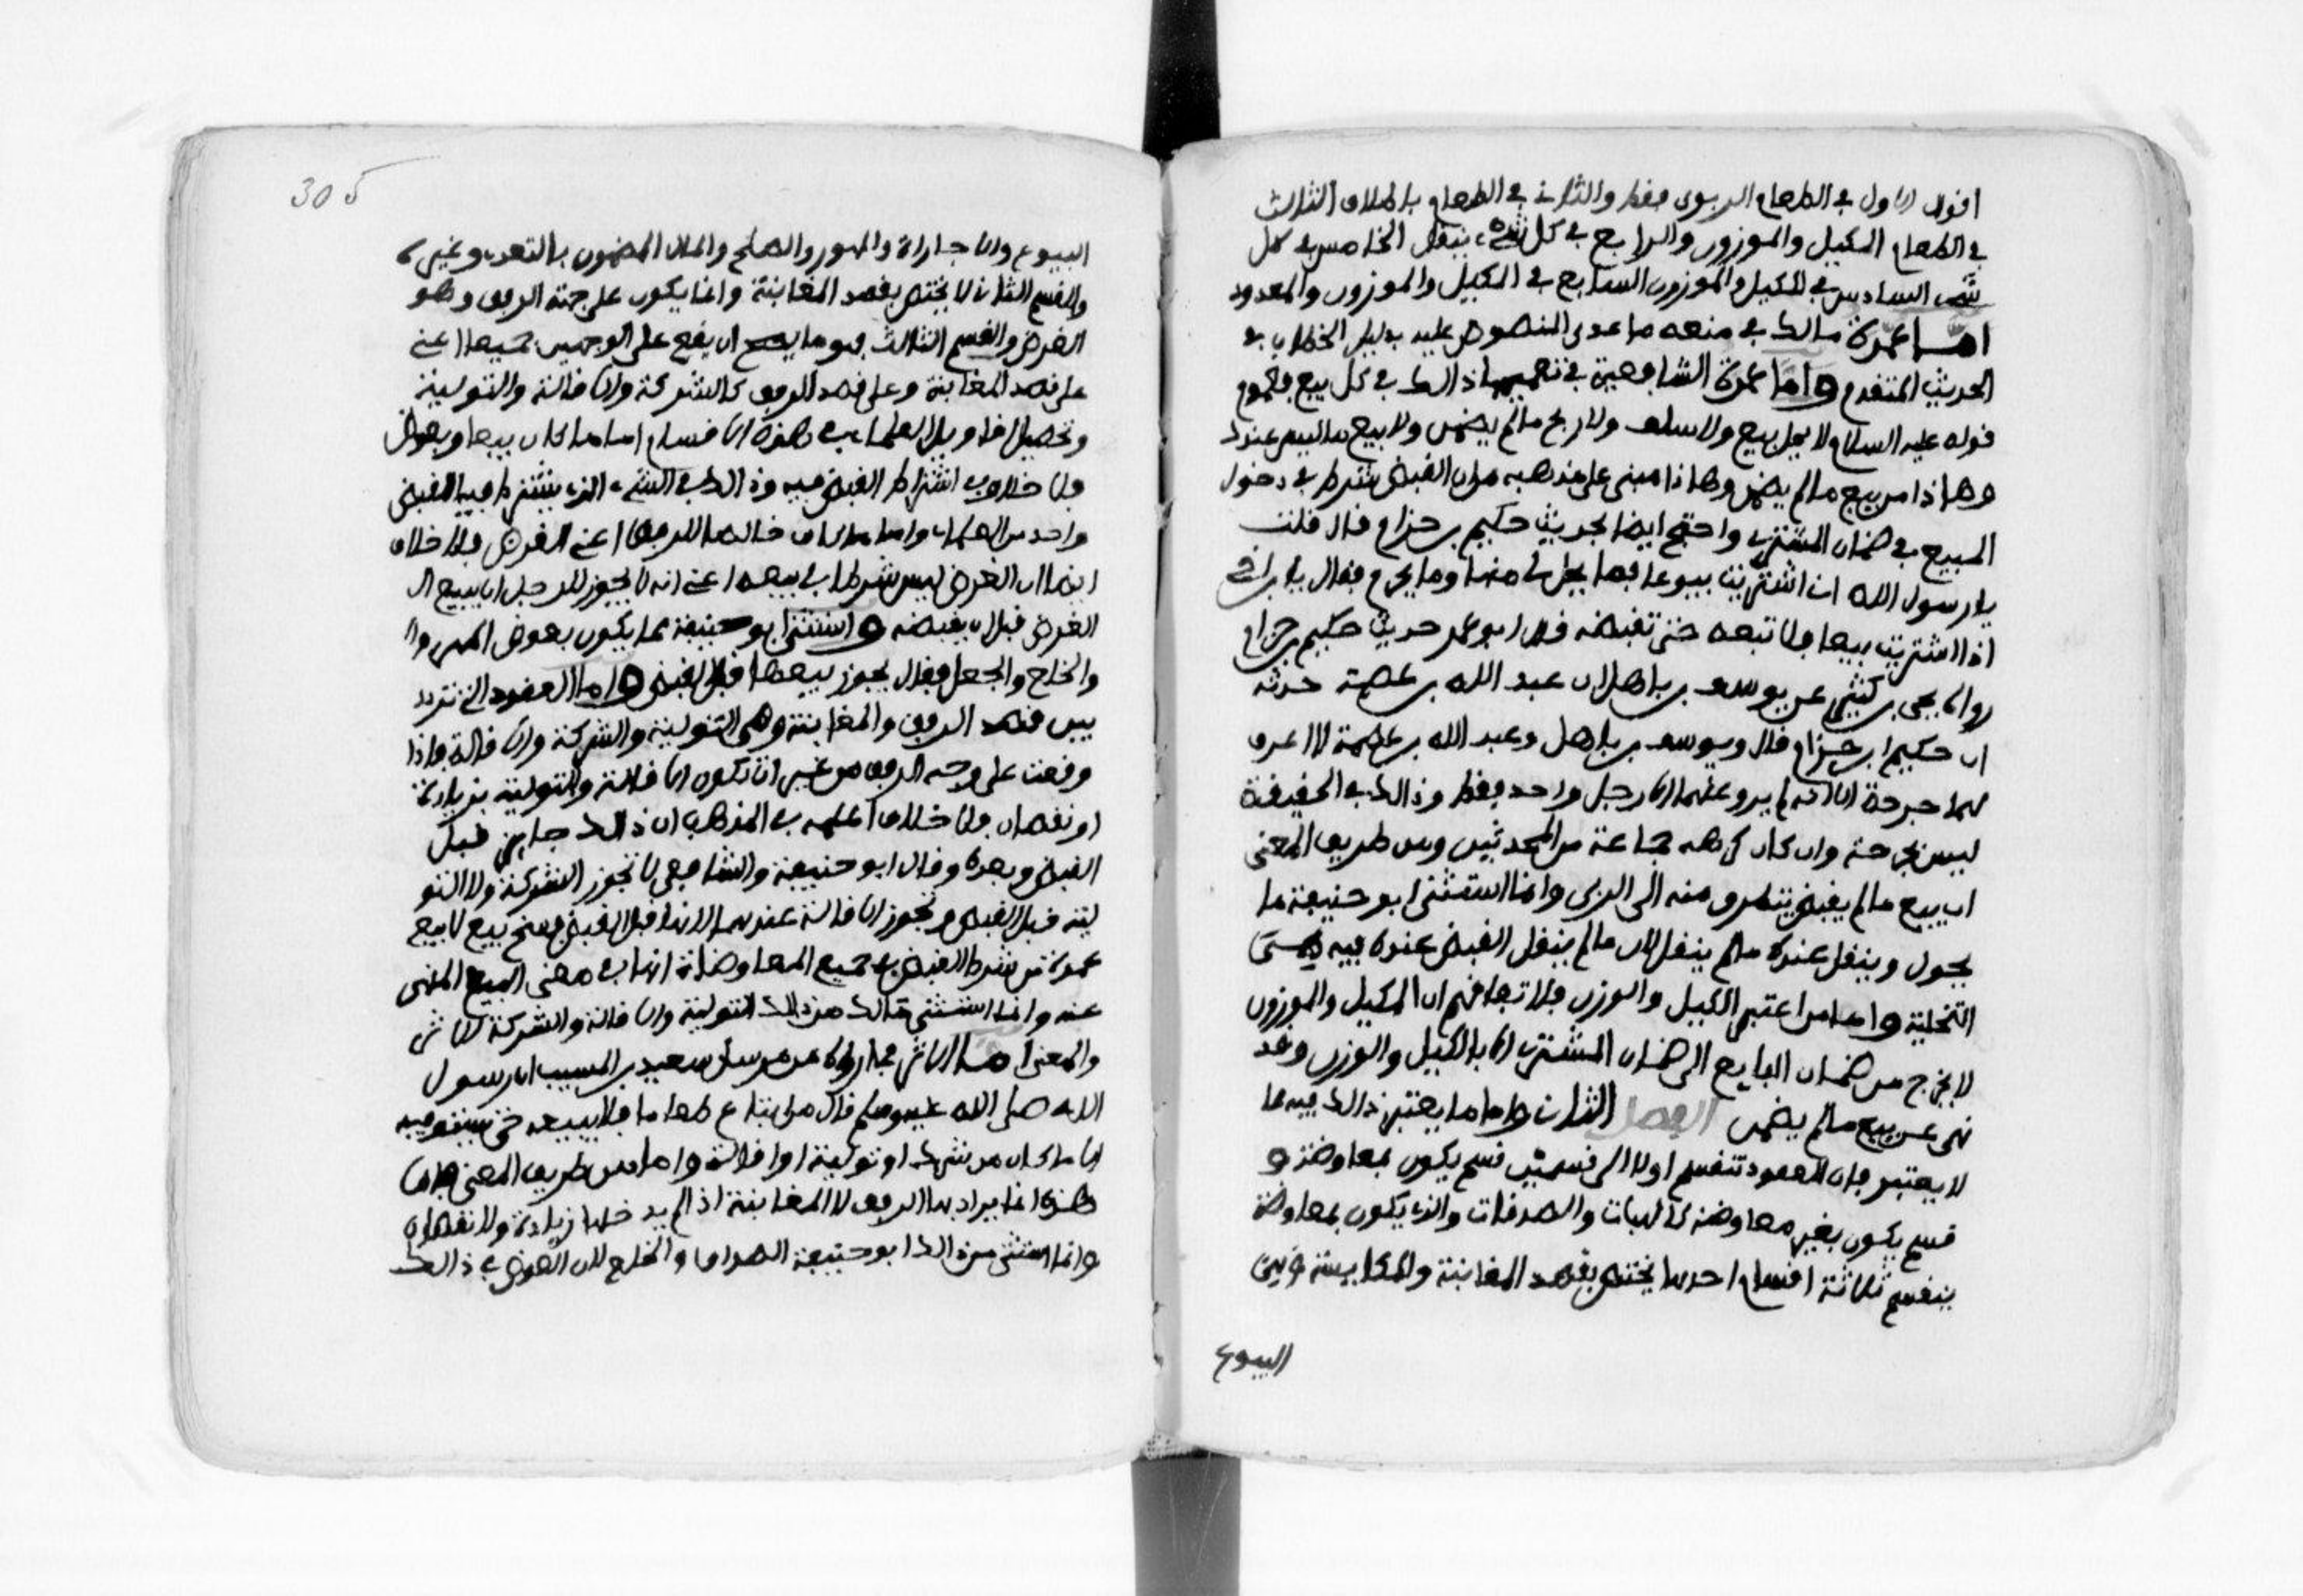 اقوال الاول في الطعام الربوي فقط والثاني في الطعام باطلاق الثالث
في الطعام المكيل والموزون والرابع في كل شيء ينقل الخامس في كل
شيء السادس في المكيل والموزون السابع في المكيل والموزون والمعدود
اما عمدة مالك في منعه ما عدى المنصوص عليه بدليل الخطاب في
الحديث المتقدم واما عمدة الشافعي في تعميم ذالك في كل بيع فعموم
قوله عليه السلام لا يحل بيع وسلف ولا ربح مالم يضمن ولا بيع ما ليس عندك
وهاذا من بيع مالم يضمن وهاذا مبنى على مذهبه من ان القبض شرط في دخول
المبيع في ضمان المشتري واحتج ايضا بحديث حكيم بن حزام قال قلت
يا رسول الله اني اشتريت بيوعا فما يحل لي منها وما يحرم فقال يا بن اخي
اذا اشتريت بيعا فلا تبعه حتى تقبضه قال ابو عمر حديث حكيم بن حزام
رواه يحيى بن كثير عن يوسف بن ماهل ان عبد الله بن عصمة حدثه
ان حكيم ابن حزام قال ويوسف بن ماهل وعبد الله بن عصمة لا اعرف
لهما جرحة الا انه لم يرو عنهما الا رجل واحد فقط وذالك في الحقيقة
ليس بجرحة وان كان كرهه جماعة من المحدثين ومن طريق المعنى
ان بيع مالم يقبض يتطرق منه الى الربى وانما استثنى ابو حنيفة ما
يحول وينقل عنده مالم ينقل لان مالم ينقل القبض عنده فيه هي
التخلية واما من اعتبر الكيل والوزن فلاتفاقهم ان المكيل والموزون
لا يخرج من ضمان البايع الى ضمان المشتري الا بالكيل والوزن وقد
نهي عن بيع مالم يضمن الفصل الثاني واما ما يعتبر ذالك فيه مما
لا يعتبر فان العقود تنقسم اولا الى قسمين قسم يكون بمعاوضة و
قسم يكون بغير معاوضة كالهبات والصدقات والذي يكون بمعاوضة
ينقسم ثلاثة اقسام احدها يختص بقصد المغابنة والمكايسة وهي
البيوع
305
البيوع والاجارات والمهور والصلح والمال المضمون بالتعدي وغيره
والقسم الثاني لا يختص بقصد المغابنة وانما يكون على جهة الرفق وهو
القرض والقسم الثالث فهو ما يصح ان يقع على الوجهين جميعا اعني
على قصد المغابنة وعلى قصد الرفق كالشركة والاقالة والتولية
وتحصيل اقاويل العلماء في هذه الاقسام اما ما كان بيعا وبعوض
فلا خلاف في اشتراط القبض فيه وذالك في الشيء الذي يشترط فيه القبض
واحد من العلماء واما ما كان خالصا للرفق اعني القرض فلا خلاف
ايضا ان القبض ليس شرطا في بيعه اعني انه لا يجوز للرجل ان يبيع ال
القرض قبل ان يقبضه واستثنى ابو حنيفة مما يكون بعوض المهر وا
والخلع والجعل فقال يجوز بيعها قبل القبض واما العقود التي تتردد
بين قصد الرفق والمغابنة وهي التولية والشركة والاقالة فاذا
وقعت على وجه الرفق من غير ان تكون الاقالة والتولية بزيادة
او نقصان فلا خلاف اعلمه في المذهب ان ذالك جايز قبل
القبض وبعده وقال ابو حنيفة والشافعي لا تجوز الشركة ولا التو
لية قبل القبض وتجوز الاقالة عندهما لانها قبل القبض فسخ بيع لا بيع
عمدة من شرط القبض في جميع المعاوضات انها في معنى البيع المنهى
عنه وانما استثنى مالك من ذالك التولية والاقالة والشركة للاثر
والمعنى اما الاثر فما رواه من مرسل سعيد بن المسيب ان رسول
الله صلى الله عليه وسلم قال من ابتاع طعاما فلا يبيعه حتى يستوفيه
الا ما كان من شرك او تولية او اقالة واما من طريق المعنى فان
هذه انما يراد بها الرفق لا المغابنة اذا لم يدخلها زيادة ولا نقصان
وانما استثنى من ذالك ابو حنيفة الصداق والخلع لان العوض في ذالك